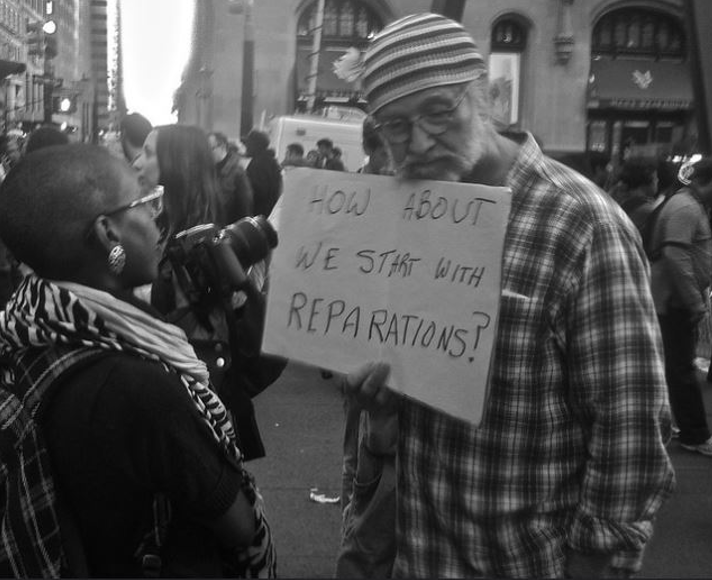 HOW ABOUT
WE START WITH
REPARATIONS?